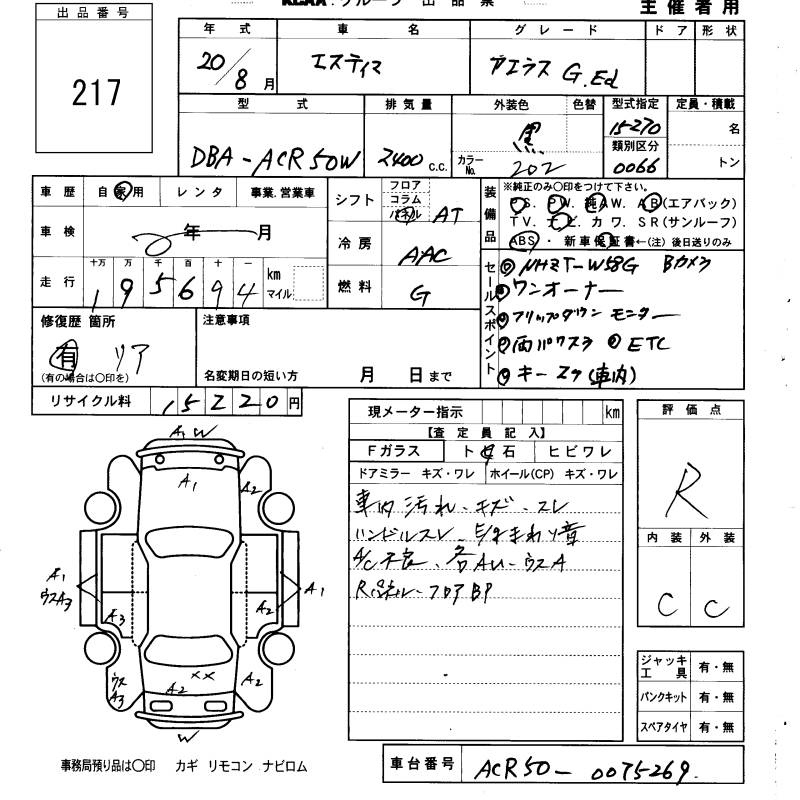 出品番号
217
主催者用
年式 車名 グレード ドア 形状
20/8月 エスティマ アエラス G.Ed
型式 排気量 外装色 色替 型式指定 定員・積載
DBA-ACR50W 2400 c.c. 黒 カラーNo. 202 15270 名
類別区分
0066 トン
車歴 自家用 レンタ 事業.営業車
車検 2年 月
走行 十万 万 千 百 十 一 km マイル
195694
シフト フロア コラム パネル AT
冷房 AAC
燃料 G
装備品 ※純正のみ○印をつけて下さい。
P.S. P.W. 純A.W. A.B(エアバック)
T.V. ナビ. カワ. S.R(サンルーフ)
ABS・新車保証書←(注)後日送りのみ
セールスポイント
NHZT-W58G Bカメラ
ワンオーナー
フリップダウン モニター
両パワスラ ETC
キー2ヶ(車内)
修復歴 箇所
有 リア
(有の場合は○印を)
注意事項
名変期日の短い方 月 日まで
リサイクル料 15220円
現メーター指示 km
【査定員記入】
Fガラス ト 石 ヒビワレ
ドアミラー キズ・ワレ ホイール(CP) キズ・ワレ
車内 汚れ、キズ・スレ
ハンドルスレ、
A/C不良、各AU-ウスA
Rパネル-フロアBP
評価点
R
内装 外装
C C
A1 W
A1
A2
A1
ウスA3
A3
A2
A1
ウス
A3
A2
××
A2
W
ジャッキ工具 有・無
パンクキット 有・無
スペアタイヤ 有・無
事務局預り品は○印 カギ リモコン ナビロム
車台番号 ACR50-0075269.